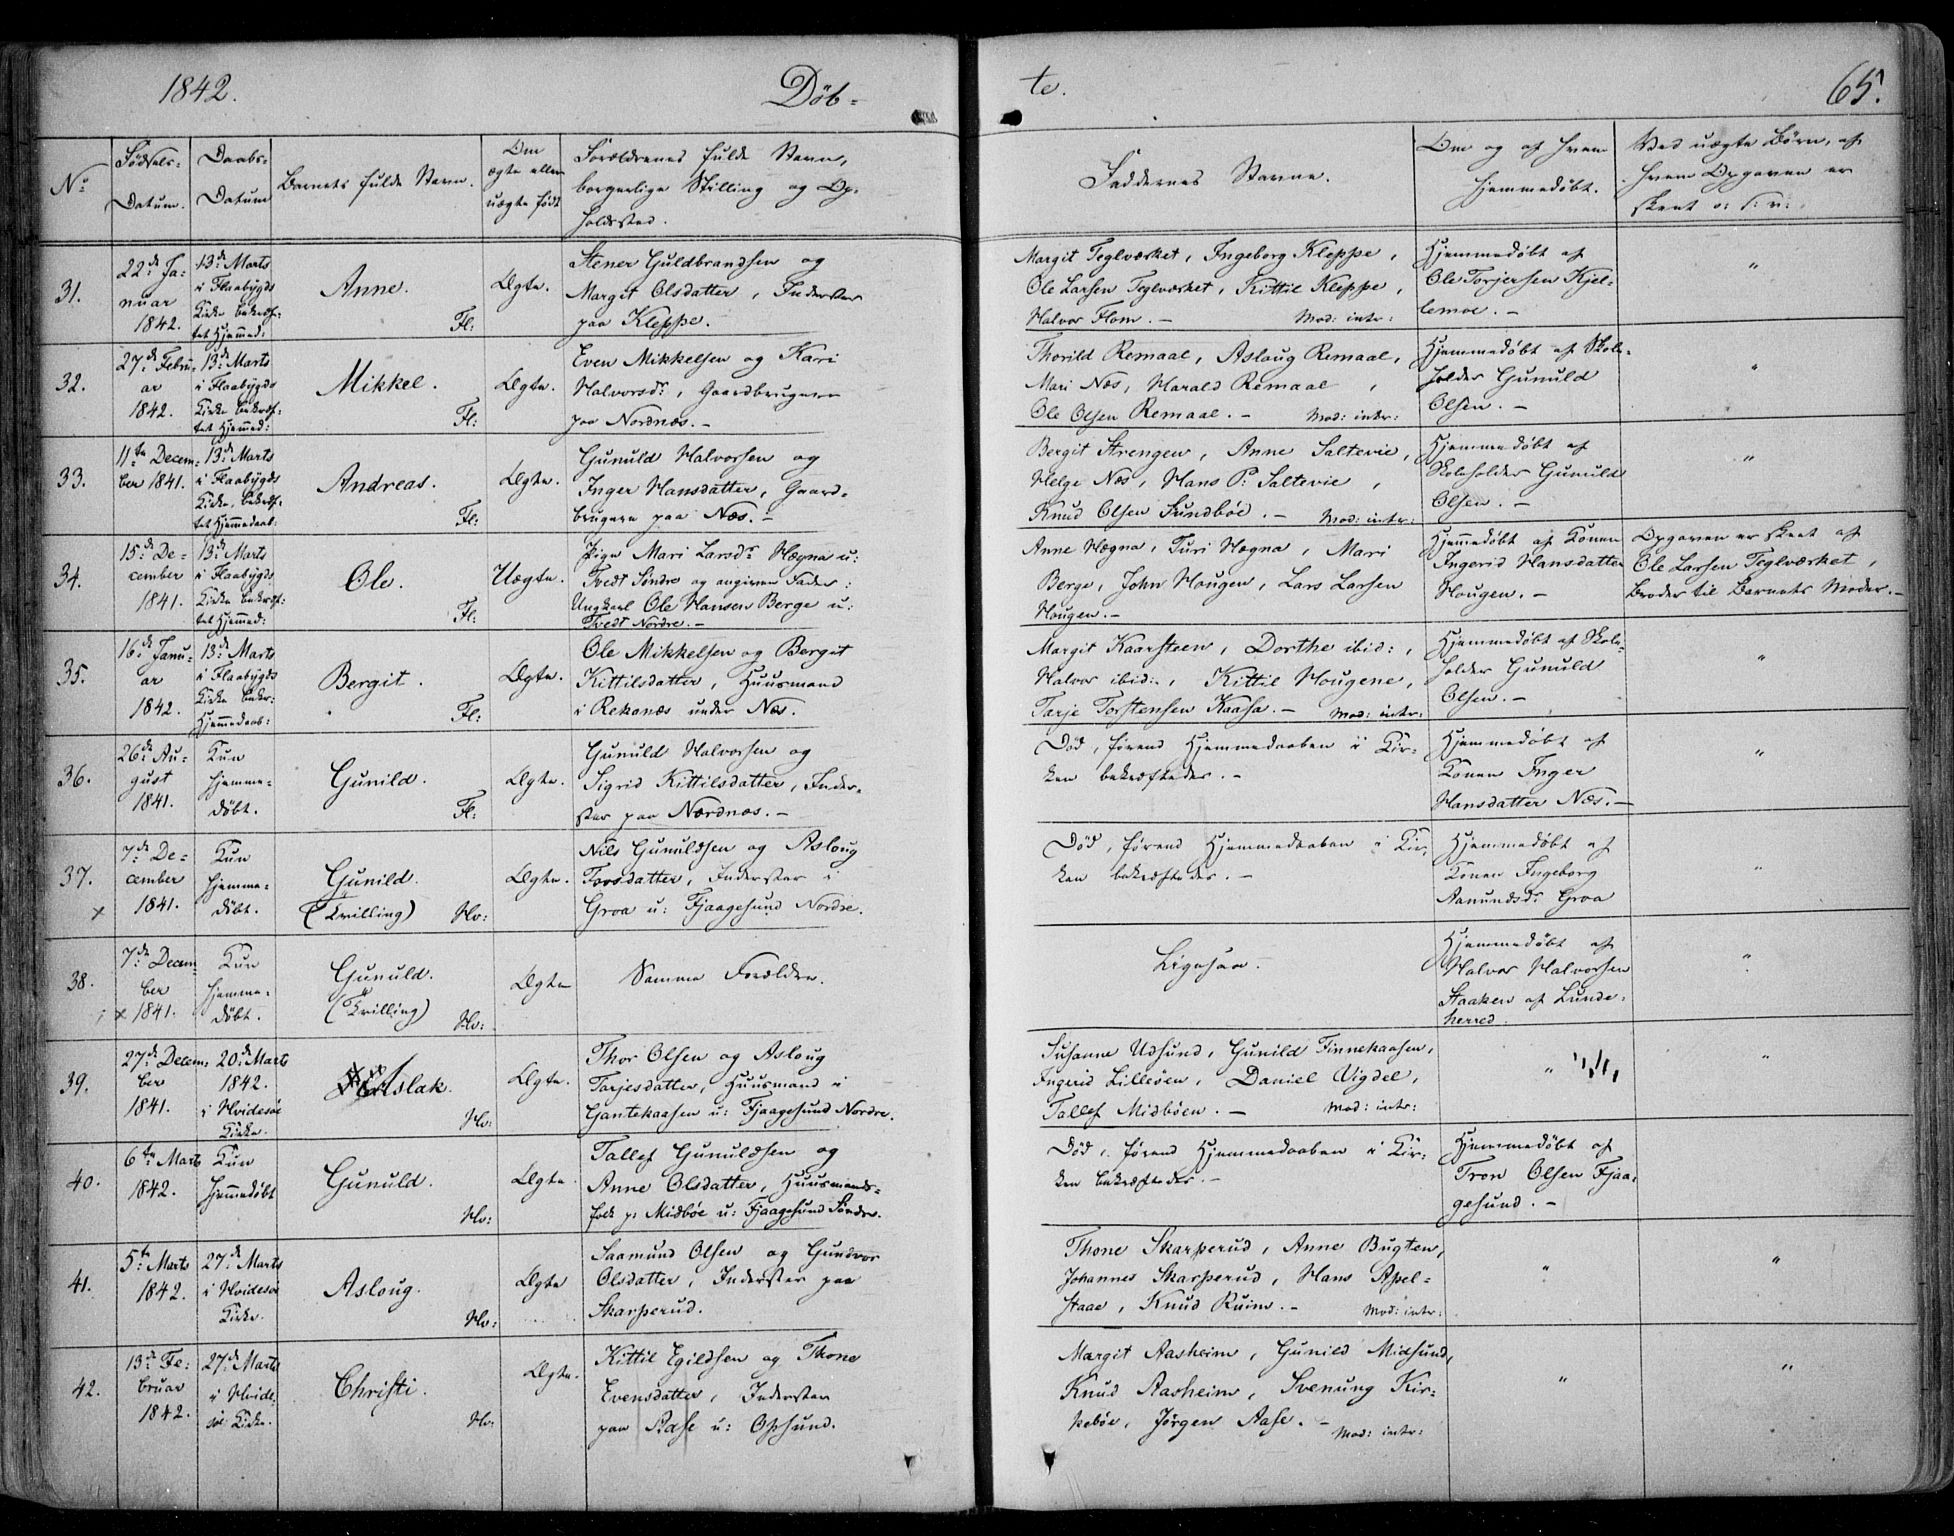 1842.
Döb-
te.
65.
No
Födsels-
Datum.
Daabs-
Datum
Barnets fulde Navn.
Om
ægte eller
uægte født
Forældrenes fulde Navn,
borgerlige Stilling og Op-
holdssted.
Faddernes Navne.
Om og af hvem
hjemmedøbt.
Ved uægte Børn, af
hvem Opgaven er
skeet o: s: v:
31.
22de Ja-
nuar
1842.
13de Marts
i Flaabygds
Kirke bekræf-
tet Hjemmed:
Anne.
Fl:
Ægte.
Stener Guldbrandsen og
Margit Olsdatter, Inderster
paa Kleppe.
Margit Teglværket, Ingeborg Kleppe,
Ole Larsen Teglværket, Kittil Kleppe,
Halvor Flom. – Mod: intr:
Hjemmedøbt af
Ole Torjersen Kjel-
lemoe. –
"
32.
27de Febru-
ar
1842.
13de Marts
i Flaabygds
Kirke bekræf-
tet Hjemmed:
Mikkel.
Fl:
Ægte.
Even Mikkelsen og Kari
Halvorsdr, Gaardbrugere
paa Nordnæs. –
Thorild Remaal, Asloug Remaal,
Mari Næs, Harald Remaal,
Ole Olsen Remaal. – Mod: intr:
Hjemmedøbt af Skole-
holder Gunuld
Olsen. –
"
33.
11te Decem-
ber 1841.
13de Marts
i Flaabygds
Kirke, bekræf-
tet Hjemmedaab:
Andreas.
Fl:
Ægte.
Gunuld Halvorsen og
Inger Hansdatter, Gaard-
brugere paa Næs. –
Bergit Strengen, Anne Saltevie,
Helge Næs, Hans P: Saltevie,
Knud Olsen Sundböe. – Mod: intr:
Hjemmedøbt af
Skoleholder Gunuld
Olsen. –
"
34.
15de De-
cember
1841.
13de Marts
i Flaabygds
Kirke bekræf-
tet Hjemmed:
Ole.
Fl:
Uægte.
Pige Mari Larsdr Hægna u:
Tvedt Söndre og angiven Fader:
Ungkarl Ole Hansen Berge u:
Tvedt Nordre. –
Anne Hægna, Turi Hægna, Mari
Berge, John Hougen, Lars Larsen
Hougen. –
Hjemmedøbt af Konen
Ingerid Hansdatter
Hougen. –
Opgaven er skeet af
Ole Larsen Teglværket,
Broder til Barnets Moder. –
35.
16de Janu-
ar
1842.
13de Marts
i Flaabygds
Kirke bekr:
Hjemmedaab:
Bergit.
Fl:
Ægte.
Ole Mikkelsen og Bergit
Kittilsdatter, Huusmand
i Rekanæs under Næs.
Margit Kaarsteen, Dorthe ibid:,
Halvor ibid:, Kittil Hougene,
Tarje Torstensen Kaasa. – Mod: intr:
Hjemmedøbt af Skole-
holder Gunuld
Olsen. –
"
36.
26de Au-
gust
1841.
Kun
hjemme-
døbt.
Gunild.
Fl:
Ægte.
Gunuld Halvorsen og
Sigrid Kittilsdatter, Inder-
ster paa Nordnæs. –
Död, førend Hjemmedaaben i Kir-
ken bekræftedes. –
Hjemmedøbt af
Konen Inger
Hansdatter Næs. –
"
37.
×
7de De-
cember
1841.
Kun
hjemme-
døbt.
Gunild.
(Tvilling)
Hv:
Ægte.
Nils Gunuldsen og Asloug
Torsdatter, Inderster i
Groa u: Fjaagesund Nordre.
Död, førend Hjemmedaaben i Kir-
ken bekræftedes. –
Hjemmedøbt af
Konen Ingeborg
Aanundsdr Groa
"
38.
×
7de Decem-
ber
1841.
Kun
hjemme-
døbt.
Gunuld.
(Tvilling)
Hv:
Ægte
Samme Forældre.
Ligesaa. –
Hjemmedøbt af
Halvor Halvorsen
Staaken af Lunde-
herred.
"
39.
27de Decem-
ber
1841.
20de Marts
1842.
i Hvidesöe
Kirke.
Hv:
Ægte.
Thor Olsen og Asloug
Tarjesdatter, Huusmand i
Gantekaasen u: Fjaagesund Nordre.
Susanne Udsund, Gunild Finnekaasen,
Ingerid Lilleöen, Daniel Vigdel,
Tallef Midböen. – Mod: intr:
"
"
40.
6te Marts
1842.
Kun
Hjemmedøbt
Gunuld.
Hv:
Ægte.
Tallef Gunuldsen og
Anne Olsdatter, Huusmands-
folk p: Midböe u: Fjaagesund Söndre.
Död, førend Hjemmedaaben i Kir-
ken bekræftedes. –
Hjemmedøbt af
Tron Olsen Fjaa-
gesund. –
41.
5te Marts
1842.
27de Marts
i Hvidesöe
Kirke.
Asloug.
Hv:
Ægte
Saamund Olsen og Gundvor
Olsdatter, Inderster paa
Skarperud.
Thone Skarperud, Anne Bugten,
Johannes Skarperud, Hans Apel-
staae, Knud Ruim. – Mod: intr:
"
"
42.
13de Fe-
bruar
1842.
27de Marts
i Hvide-
söe Kirke.
Christi.
Hv:
Ægte.
Kittil Egildsen og Thone
Evensdatter, Inderster
paa Aase u: Opsund.
Margit Aasheim, Gunild Midsund,
Knud Aasheim, Svenung Kir-
keböe, Jörgen Aase. –
Mod: intr:
"
"